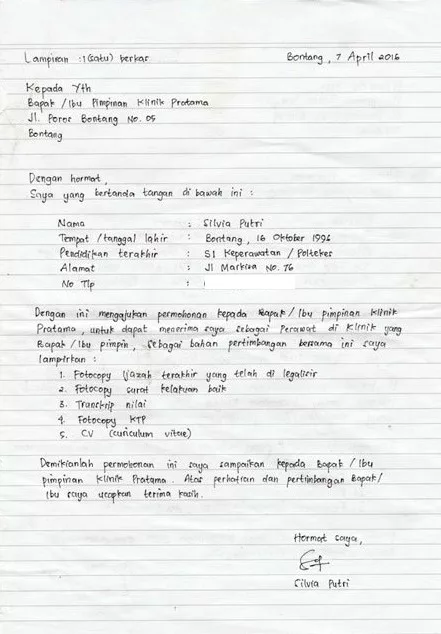 Lampiran : 1 (satu) berkas
Bontang, 7 April 2016
Kepada Yth
Bapak / Ibu Pimpinan Klinik Pratama
Jl. Poros Bontang No. 05
Bontang
Dengan hormat,
Saya yang bertanda tangan di bawah ini :
Nama : Silvia Putri
Tempat / tanggal lahir : Bontang, 16 Oktober 1996
Pendidikan terakhir : S1 Keperawatan / Poltekes
Alamat : Jl Markisa No. 76
No Tlp :
Dengan ini mengajukan permohonan kepada Bapak / Ibu pimpinan klinik
Pratama, untuk dapat menerima saya sebagai Perawat di Klinik yang
Bapak / Ibu pimpin, sebagai bahan pertimbangan bersama ini saya
lampirkan :
1. Fotocopy Ijazah terakhir yang telah di legalisir
2. Fotocopy surat kelakuan baik
3. Transkrip nilai
4. Fotocopy KTP
5. CV (curiculum vitae)
Demikianlah permohonan ini saya sampaikan kepada Bapak / Ibu
pimpinan Klinik Pratama. Atas perhatian dan pertimbangan Bapak/
Ibu saya ucapkan terima kasih.
Hormat saya,
Silvia Putri